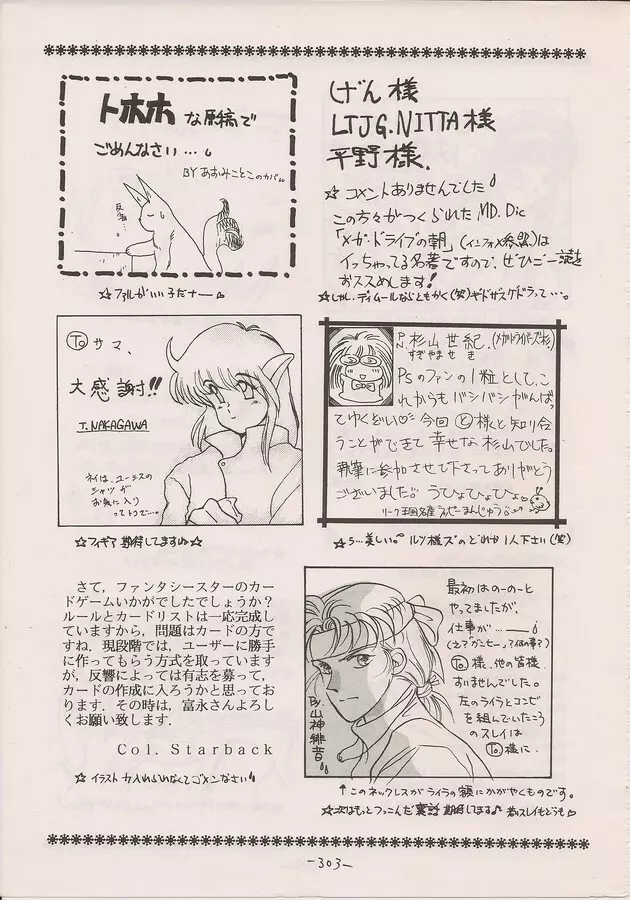 トホホな原稿で
ごめんなさい…。
BY あおみことこのカバル
反省…
☆ファルがいい子だナー
げん様
LTJG.NITTA様
平野様.
☆コメントありませんでした
この方々がつくられた MD.Dic
「メガ・ドライブの朝」(インフォメ参照)は
イっちゃってる名著ですので、ぜひご一読を
おススメします!
To サマ、
大感謝!!
T.NAKAGAWA
ネイは、ユーシスの
シャツが
お気に入り
☆フィギア期待してます☆
P.N. 杉山 世紀.(メガドライバーズ杉)
すぎやま せき
PSのファンの1粒として、こ
れからもバシバシがんばっ
てゆくどい♡ 今回 と様と知り合
うことができて幸せな杉山でした。
執筆に参加させて下さってありがとう
ございました。うひょひょひょひょ
☆う…美しい。ルツ様ズのどれか1人下さい(笑)
さて，ファンタシースターのカー
ドゲームいかがでしたでしょうか？
ルールとカードリストは一応完成し
ていますから，問題はカードの方で
すね．現段階では，ユーザーに勝手
に作ってもらう方式を取っています
が，反響によっては有志を募って，
カードの作成に入ろうかと思ってお
ります．その時は，富永さんよろし
くお願い致します．
Col. Starback
☆イラスト力入れられなくてゴメンなさい
最初はのーのーと
やってましたが、
仕事が…
To様、他の皆様
すいませんでした。
左のライラとコンビ
を組んでいたころ
のスレイは
To様に.
By.山神緋音
↑このネックレスがライラの額にかがやくものです。
☆次はもっとつっこんだ裏話期待してます♪ 君のスレイもどうも
-303-